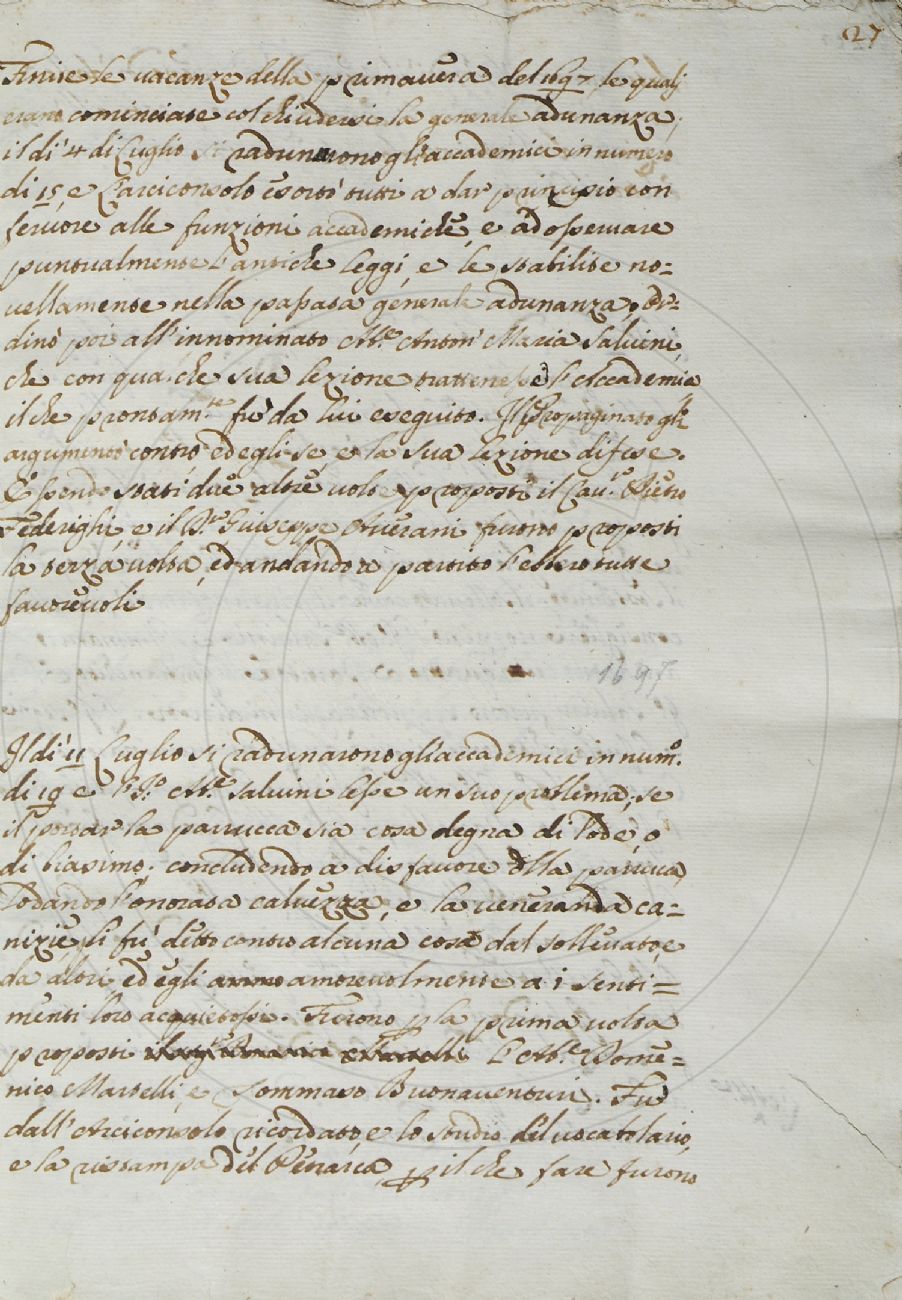 27
Finite le vacanze della primavera del 1697 le quali
erano cominciate col chiudersi la generale adunanza,
il dì 4 di Luglio si radunarono gli accademici in numero
di 15, e l'arciconsolo esortò tutti a dar principio con
fervore alle funzioni accademiche, e ad osservare
puntualmente l'antiche leggi, e le stabilite no=
vellamente nella passata generale adunanza. Or=
dinò poi all'innominato Ab.e Anton Maria Salvini,
che con qualche sua lezione trattenesse l'Accademia
il che prontam.te fu da lui eseguito. Il Propaginato gli
argumentò contro ed egli se, e la sua lezione difese.
Essendo stati due altre volte proposti il Cav.re Pietro
Federighi, e il D.re Giuseppe Averani furono proposti
la terza volta, ed andando a partito l'ebbero tutte
favorevoli
1697
Il dì 11 Luglio si radunarono gli accademici in num.o
di 19 e l' Ab.e Salvini lesse un suo problema, se
il portar la parrucca sia cosa degna di lode, o
di biasimo; concludendo a disfavore della parrucca,
lodando l'onorata calvezza, e la veneranda ca=
nizie, li fu detto contro alcuna cosa dal sollevato, e
da altri, ed egli amorevolmente a i senti=
menti loro acquietossi. Furono p la prima volta
proposti l'Ab.e Dome=
nico Martelli, e Tommaso Buonaventuri. Fu
dall'Arciconsolo ricordato, e lo studio del vocabolario,
e la ristampa del Petrarca, p il che fare furono